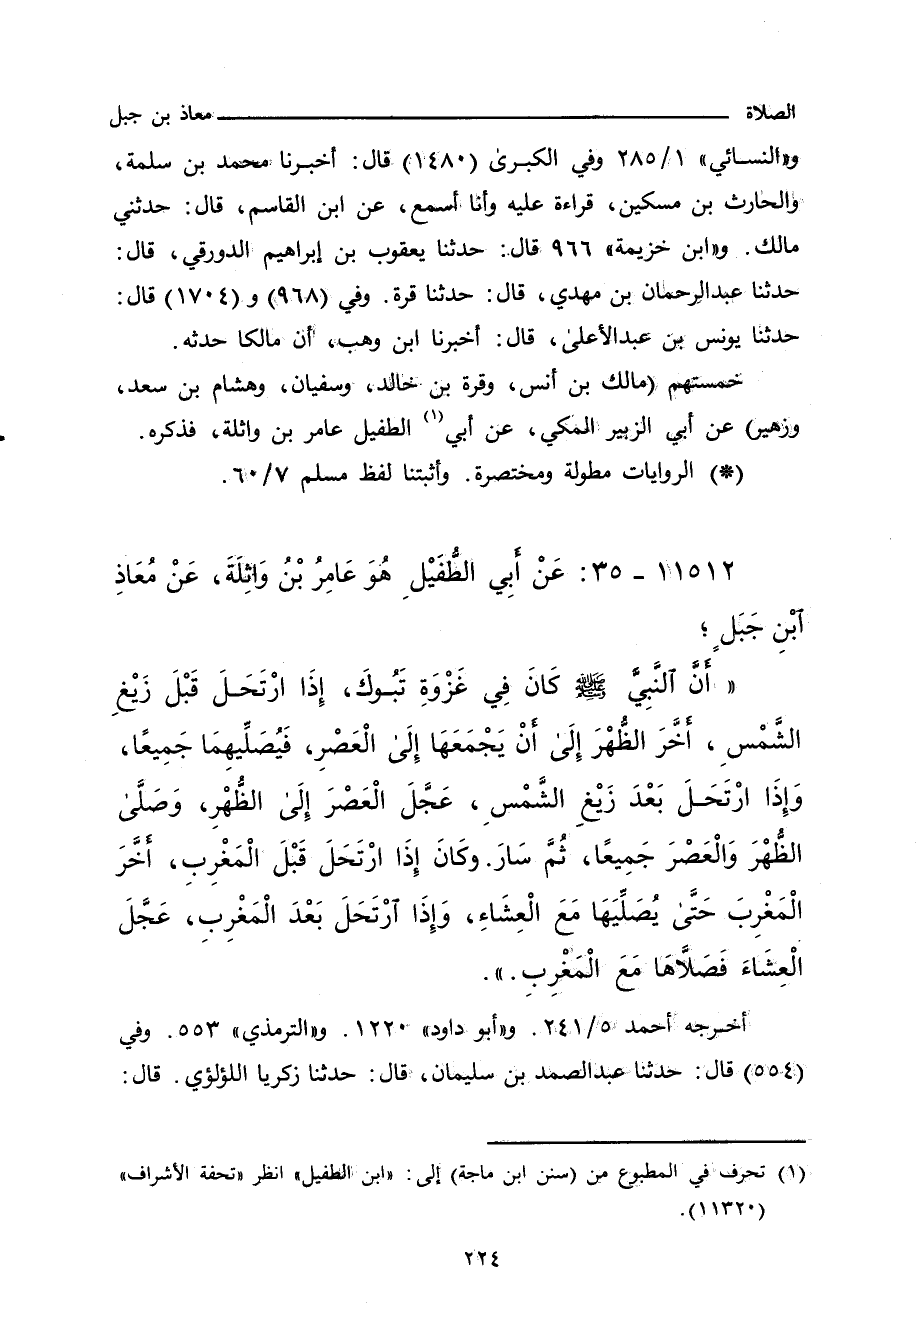 الصلاة ــــــــــــــــــــ معاذ بن جبل
و«النسائي» ٢٨٥/١ وفي الكبرىٰ (١٤٨٠) قال: أخبرنا محمد بن سلمة،
والحارث بن مسكين، قراءة عليه وأنا أسمع، عن ابن القاسم، قال: حدثني
مالك. و«ابن خزيمة» ٩٦٦ قال: حدثنا يعقوب بن إبراهيم الدورقي، قال:
حدثنا عبدالرحمان بن مهدي، قال: حدثنا قرة. وفي (٩٦٨) و (١٧٠٤) قال:
حدثنا يونس بن عبدالأعلىٰ، قال: أخبرنا ابن وهب، أن مالكا حدثه.
خمستهم (مالك بن أنس، وقرة بن خالد، وسفيان، وهشام بن سعد،
وزهير) عن أبي الزبير المكي، عن أبي(١) الطفيل عامر بن واثلة، فذكره.
(*) الروايات مطولة ومختصرة. وأثبتنا لفظ مسلم ٦٠/٧.
١١٥١٢ - ٣٥: عَنْ أَبِي الطُّفَيْلِ هُوَ عَامِرُ بْنُ وَاثِلَةَ، عَنْ مُعَاذِ
ٱبْنِ جَبَلٍ؛
« أَنَّ ٱلنَّبِيَّ ﷺ كَانَ فِي غَزْوَةِ تَبُوكَ، إِذَا ارْتَحَلَ قَبْلَ زَيْغِ
الشَّمْسِ، أَخَّرَ الظُّهْرَ إِلَىٰ أَنْ يَجْمَعَهَا إِلَىٰ الْعَصْرِ، فَيُصَلِّيهِمَا جَمِيعًا،
وَإِذَا ارْتَحَلَ بَعْدَ زَيْغِ الشَّمْسِ، عَجَّلَ الْعَصْرَ إِلَىٰ الظُّهْرِ، وَصَلَّىٰ
الظُّهْرَ وَالْعَصْرَ جَمِيعًا، ثُمَّ سَارَ. وكَانَ إِذَا ارْتَحَلَ قَبْلَ الْمَغْرِبِ، أَخَّرَ
الْمَغْرِبَ حَتَّىٰ يُصَلِّيَهَا مَعَ الْعِشَاءِ، وَإِذَا ٱرْتَحَلَ بَعْدَ الْمَغْرِبِ، عَجَّلَ
الْعِشَاءَ فَصَلَّاهَا مَعَ الْمَغْرِبِ.».
أخرجه أحمد ٢٤١/٥. و«أبو داود» ١٢٢٠. و«الترمذي» ٥٥٣. وفي
(٥٥٤) قال: حدثنا عبدالصمد بن سليمان، قال: حدثنا زكريا اللؤلؤي. قال:
(١) تحرف في المطبوع من (سنن ابن ماجة) إلى: «ابن الطفيل» انظر «تحفة الأشراف»
(١١٣٢٠).
٢٢٤